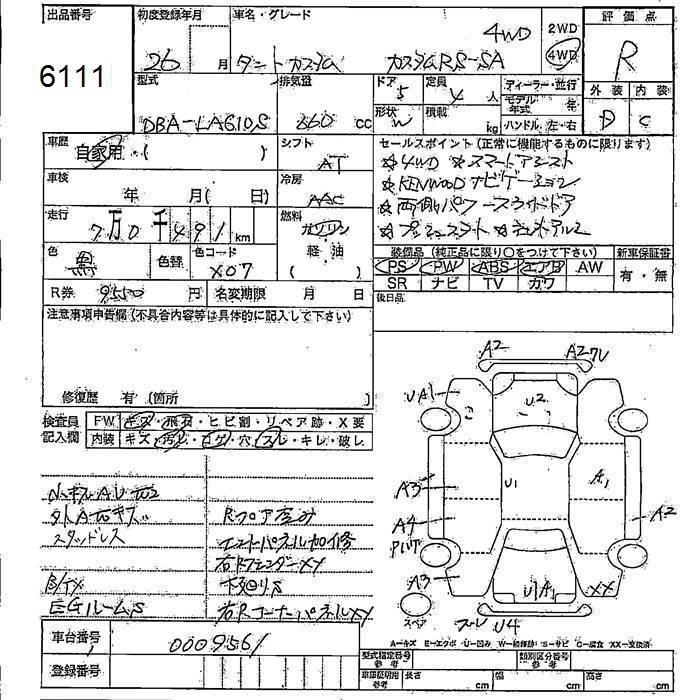 出品番号
6111
初度登録年月
26
月
車名・グレード
ダントカスタム
カスタムRS-SA
4WD
2WD
4WD
評価点
R
型式
DBA-LA610S
排気量
660 cc
ドア
5
形状
W
定員
4 人
積載
kg
ディーラー・並行
モデル年式 年
ハンドル 左・右
外装 内装
D C
車歴
自家用 ( )
シフト
AT
セールスポイント(正常に機能するものに限ります)
☆4WD ☆スマートアシスト
☆KENWOODナビゲーション
☆両側パワースライドドア
☆プッシュスタート ☆
車検
年 月( 日)
冷房
AAC
走行
7万0千491 km
燃料
ガソリン
軽油
( )
色
黒
色替
色コード
X07
装備品(純正品に限り○をつけて下さい)
新車保証書
PS PW ABS エアB AW
有・無
SR ナビ TV カワ
R券 9550 円
名変期限 月 日
後日品
注意事項申告欄(不具合内容等は具体的に記入して下さい)
修復歴 有 (箇所
検査員記入欄
FW キズ・飛石・ヒビ割・リペア跡・X要
内装 キズ・汚レ・コゲ・穴・スレ・キレ・破レ
小キズAU凹2
スタッドレス
EGルームS
Rフロア歪み
エンドパネル加修
右RフェンダーXX
下回りS
右RコーナーパネルXX
A2 A27U
UA1
U2
A3
U1
A1
A2
A4
A3
U1A1
XX
スペア
U4
A=キズ E=エクボ U=凹み W=補修跡 S=サビ C=腐食 XX=交換済
車台番号
0009561
登録番号
型式指定番号
参考
類別区分番号
参考
車庫証明用
参考
長さ cm
幅 cm
高さ cm